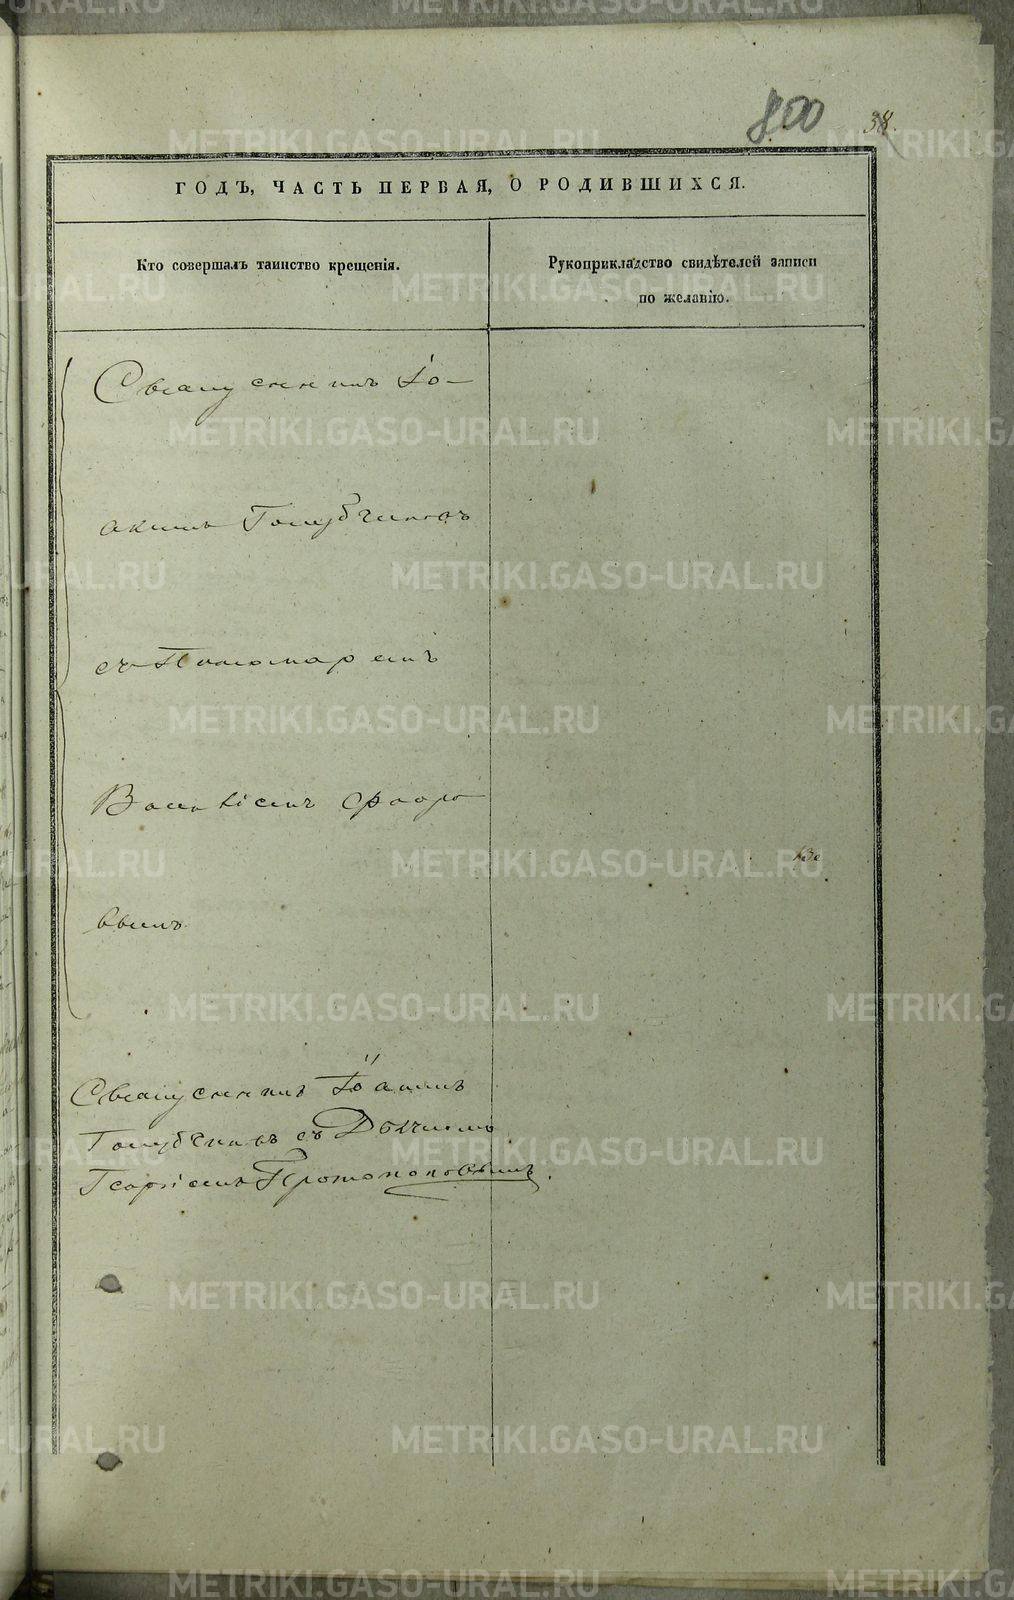 800
38
ГОДЪ, ЧАСТЬ ПЕРВАЯ, О РОДИВШИХСЯ.
Кто совершалъ таинство крещенія.
Рукоприкладство свидѣтелей записи
по желанію.
Священникъ Іо-
акимъ Голубчиковъ
съ Пономаремъ
Василіемъ Флоро
вымъ
Священникъ Іоакимъ
Голубчиковъ съ Дьячкомъ
Георгіемъ Протопоповымъ.
METRIKI.GASO-URAL.RU